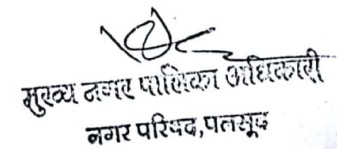 मुख्य नगर पालिका अधिकारी
नगर परिषद,पलसूद